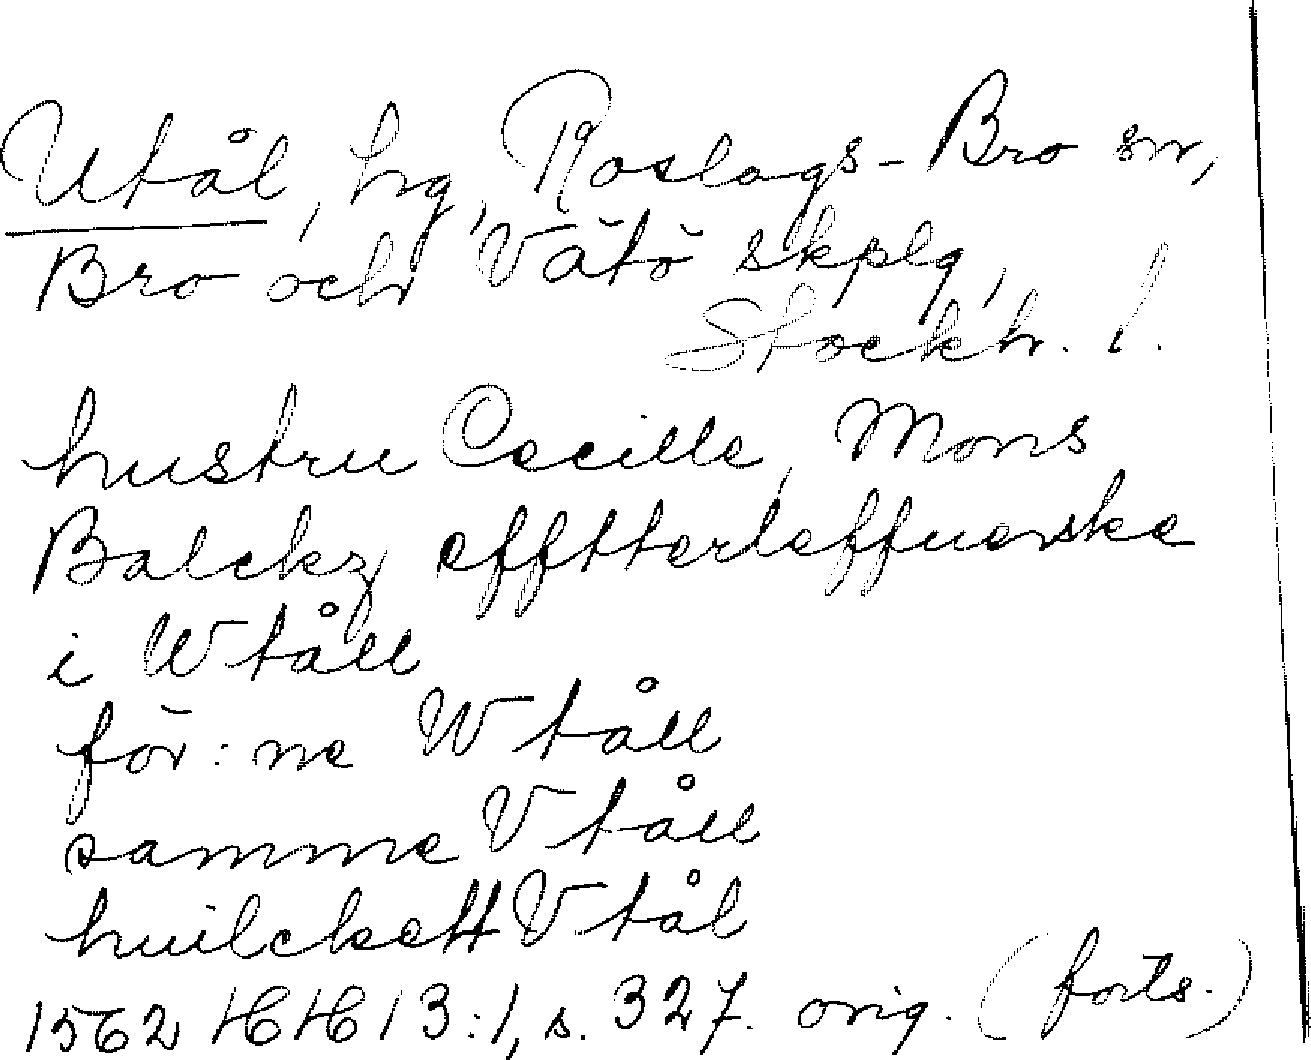 Utål, hg, Roslags-Bro sn,
Bro och Vätö skplg,
Stockh. l.
hustru Cecille, Mons
Balckz efftterleffuerske
i Wtåll
för:ne Wtåll
samme Vtåll
huilckett Vtål
1562 HH 13:1, s. 327. orig. (forts.)